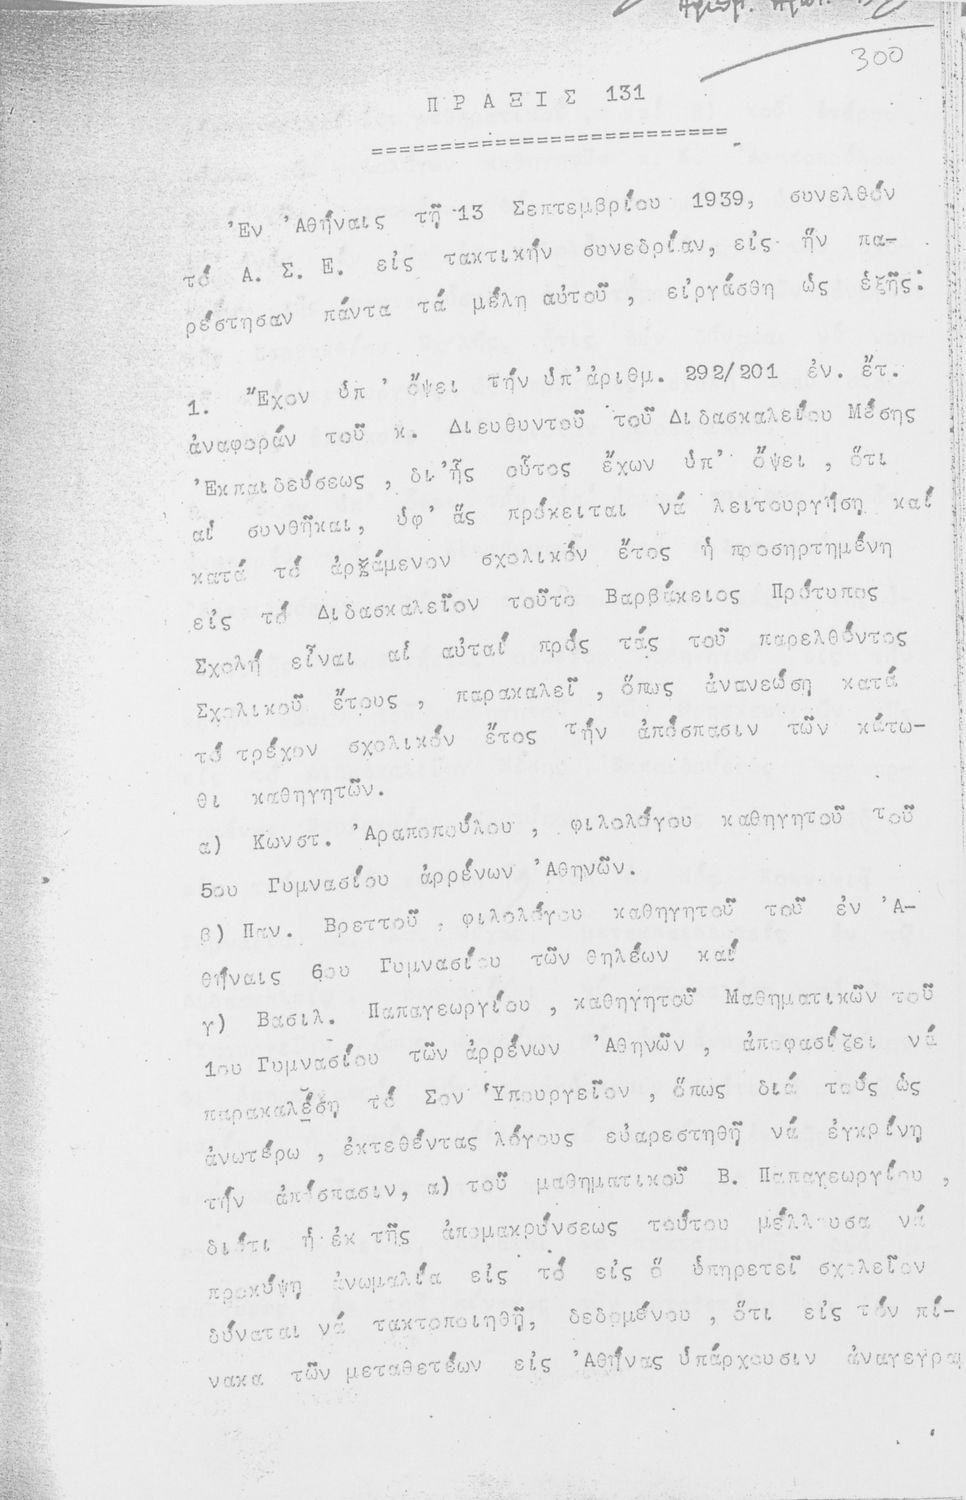 Ἀριθ. Πρωτ.
300
Π Ρ Α Ξ Ι Σ 131
===========================
Ἐν Ἀθήναις τῇ 13 Σεπτεμβρίου 1939, συνελθόν
τό Α. Σ. Ε. εἰς τακτικήν συνεδρίαν, εἰς ἥν πα-
ρέστησαν πάντα τά μέλη αὐτοῦ, εἰργάσθη ὡς ἑξῆς:
1. Ἔχον ὑπ' ὄψει τήν ὑπ' ἀριθμ. 292/201 ἐν. ἔτ.
ἀναφοράν τοῦ κ. Διευθυντοῦ τοῦ Διδασκαλείου Μέσης
Ἐκπαιδεύσεως, δι' ἧς οὗτος ἔχων ὑπ' ὄψει, ὅτι
αἱ συνθῆκαι, ὑφ' ἅς πρόκειται νά λειτουργήσῃ καί
κατά τό ἀρξάμενον σχολικόν ἔτος ἡ προσηρτημένη
εἰς τό Διδασκαλεῖον τοῦτο Βαρβάκειος Πρότυπος
Σχολή εἶναι αἱ αὐταί πρός τάς τοῦ παρελθόντος
Σχολικοῦ ἔτους, παρακαλεῖ, ὅπως ἀνανεώσῃ κατά
τό τρέχον σχολικόν ἔτος τήν ἀπόσπασιν τῶν κάτω-
θι καθηγητῶν.
α) Κωνστ. Ἀραποπούλου, φιλολόγου καθηγητοῦ τοῦ
5ου Γυμνασίου ἀρρένων Ἀθηνῶν.
β) Παν. Βρεττοῦ, φιλολόγου καθηγητοῦ τοῦ ἐν Ἀ-
θήναις 6ου Γυμνασίου τῶν θηλέων καί
γ) Βασιλ. Παπαγεωργίου, καθηγητοῦ Μαθηματικῶν τοῦ
1ου Γυμνασίου τῶν ἀρρένων Ἀθηνῶν, ἀποφασίζει νά
παρακαλέσῃ τό Σον Ὑπουργεῖον, ὅπως διά τούς ὡς
ἀνωτέρω, ἐκτεθέντας λόγους εὐαρεστηθῇ νά ἐγκρίνῃ
τήν ἀπόσπασιν, α) τοῦ μαθηματικοῦ Β. Παπαγεωργίου,
διότι ἡ ἐκ τῆς ἀπομακρύνσεως τούτου μέλλουσα νά
προκύψῃ ἀνωμαλία εἰς τό εἰς ὅ ὑπηρετεῖ σχολεῖον
δύναται νά τακτοποιηθῇ, δεδομένου, ὅτι εἰς τόν πί-
νακα τῶν μεταθετέων εἰς Ἀθήνας ὑπάρχουσιν ἀναγεγραμ